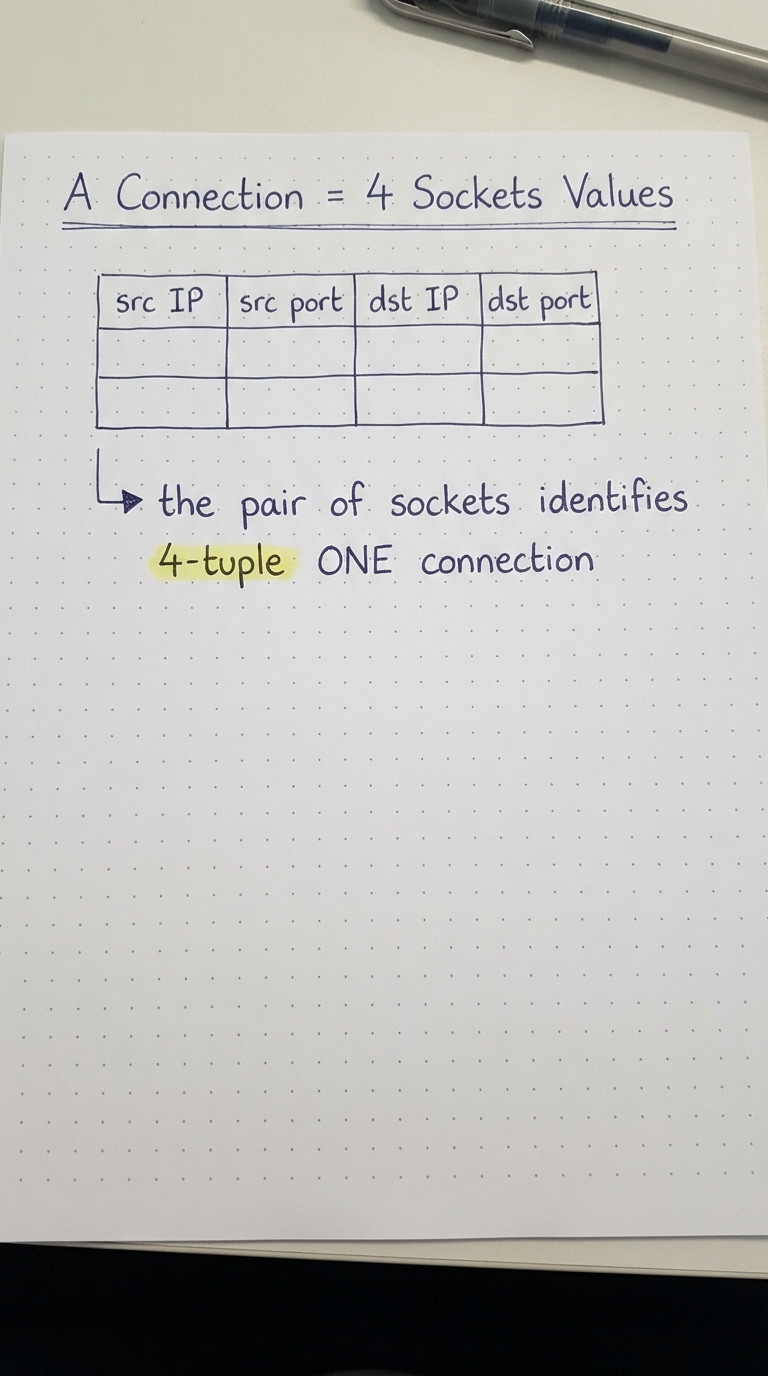 A Connection = 4 Sockets Values
src IP src port dst IP dst port
the pair of sockets identifies
4-tuple ONE connection